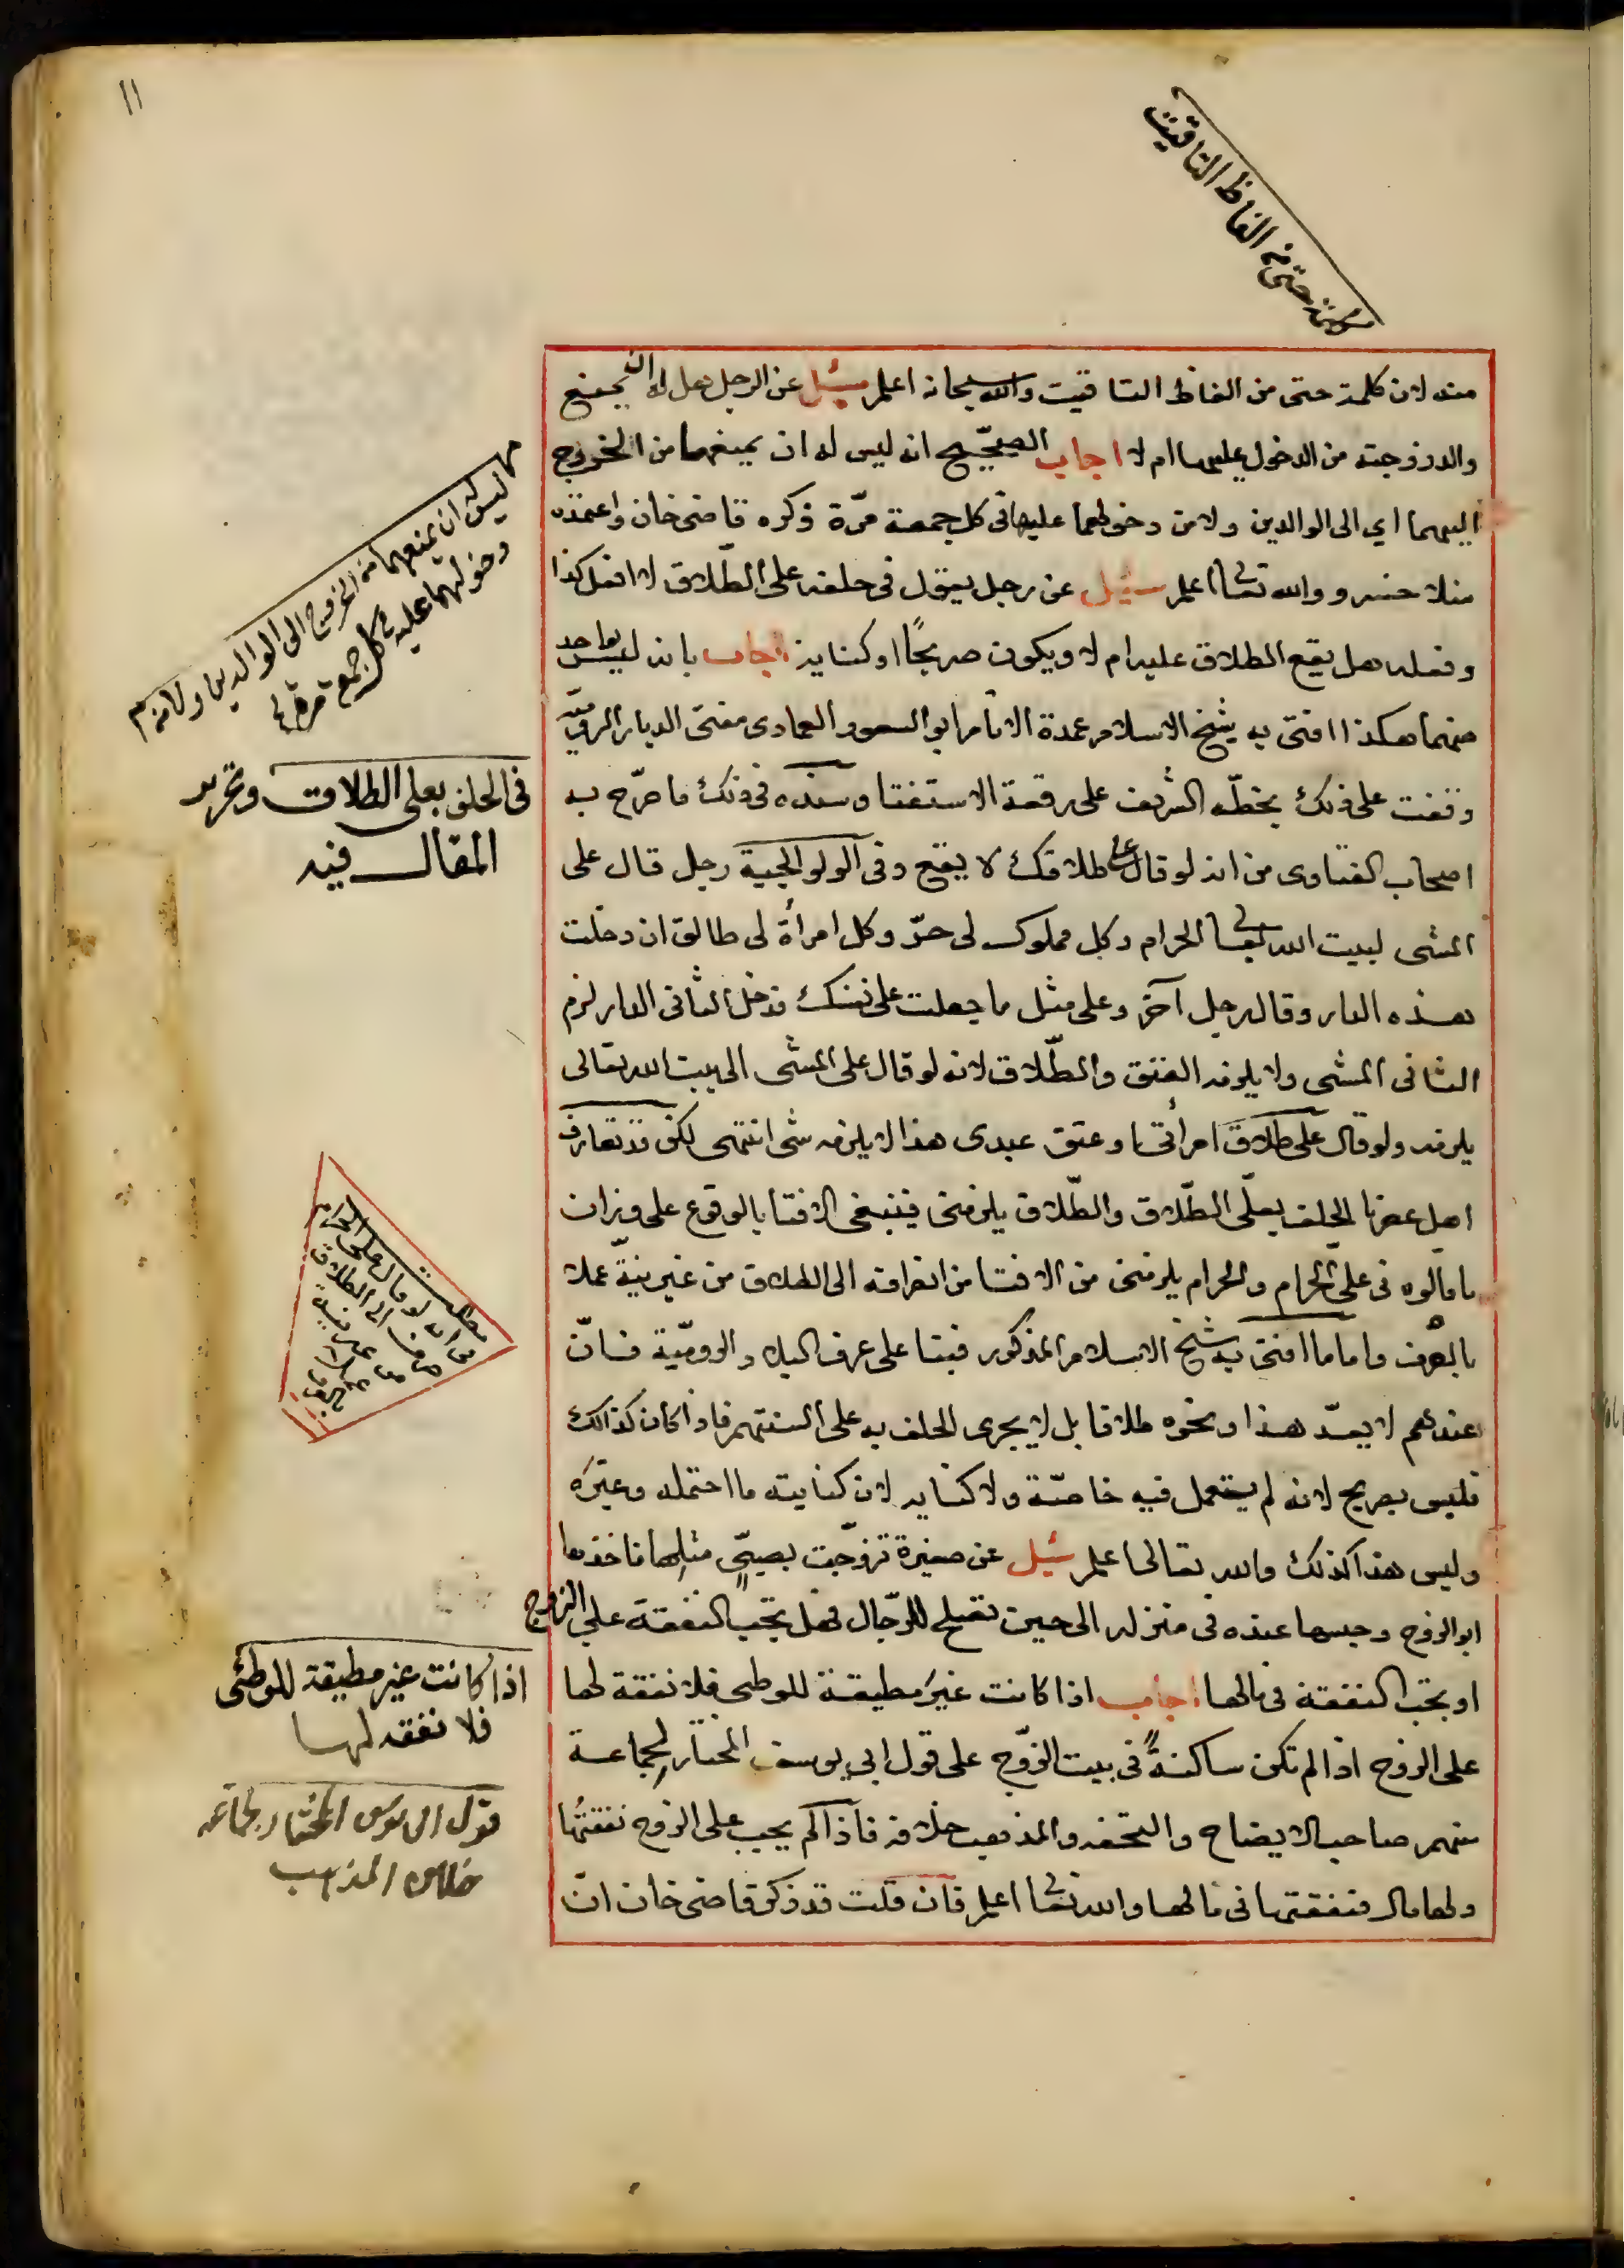 ١١
كلمة حتى من الفاظ التاقيت
منه لان كلمة حتى من الفاظ التاقيت والله سبحانه اعلم سئل عن الرجل هل له ان يمنع
والد زوجته من الدخول عليها ام لا اجاب الصحيح انه ليس له ان يمنعهما من الخروج
اليهما اي الى الوالدين ولا من دخولهما عليها في كل جمعة مرّة ذكره قاضي خان واعتمده
منلا خسرو والله تعالى اعلم سئل عن رجل يقول في حلفه على الطّلاق لا افعل كذا
وفعله هل يقع الطلاق عليه ام لا ويكون صريحًا او كناية اجاب بانه ليس بواحد
منهما هكذا افتى به شيخ الاسلام عمدة الانام ابو السعود العمادى مفتى الديار الروميّة
وقفت على ذلك بخطّه الشريف على رقعة الاستفتا وسنده في ذلك ما صرّح به
اصحاب الفتاوى من انه لو قال على طلاقك لا يقع وفى الولوالجية رجل قال على
المشى لبيت الله تعالى الحرام وكل مملوك لى حرّ وكل امرأة لى طالق ان دخلت
هذه الدار وقال رجل آخر وعلى مثل ما جعلت على نفسك فدخل الثانى الدار لزم
الثانى المشى ولا يلزمه العتق والطّلاق لانه لو قال على المشى الى بيت الله تعالى
يلزمه ولو قال على طلاق امرأتى او عتق عبدى هذا لا يلزمه شى انتهى لكن قد تعارف
اهل عصرنا الحلف بعلّى الطّلاق والطّلاق يلزمنى فينبغى الافتا بالوقوع على وزان
ما قالوه فى علىّ الحرام والحرام يلزمنى من الافتا من انصرافه الى الطلاق من غير نيّة عملا
بالعرف واما ما افتى به شيخ الاسلام المذكور فبنا على عرف البلاد الروميّة فانّ
عندهم لا يعدّ هذا ونحوه طلاقا بل لا يجرى الحلف به على السنتهم فاذا كان كذالك
فليس بصريح لانه لم يستعمل فيه خاصّة ولا كنايه لان كنايته ما احتمله وغيره
وليس هذا كذلك والله تعالى اعلم سئل عن صغيرة تزوّجت بصبىّ مثلها فاخذها
ابو الزوج وحبسها عنده فى منزله الى حين تصلح للرّجال فهل تجب النفقة على الزوج
او تجب النفقة فى مالها اجاب اذا كانت غير مطيقة للوطى فلا نفقة لها
على الزوج اذا لم تكن ساكنةً فى بيت الزوّج على قول ابى يوسف المختار لجماعة
منهم صاحب الايضاح والتحفه والمذهب خلافه فاذا لم يجب على الزوج نفقتُها
ولها مال فنفقتها فى مالها والله تعالى اعلم فان قلت قد ذكر قاضى خان انّ
ليس له ان يمنعهما من الخروج الى الوالدين ولا من
دخولهما عليه فى كل جمع مرة
فى الحلف بعلى الطلاق وتحرير
المقال فيه
مطلب
من انه لو قال على الحرام
صرف الى الطلاق
من غير نية
عملا
بالعرف
اذا كانت غير مطيقة للوطئى
فلا نفقه لها
قول ابى يوسف المختار لجماعه
خلاف المذهب